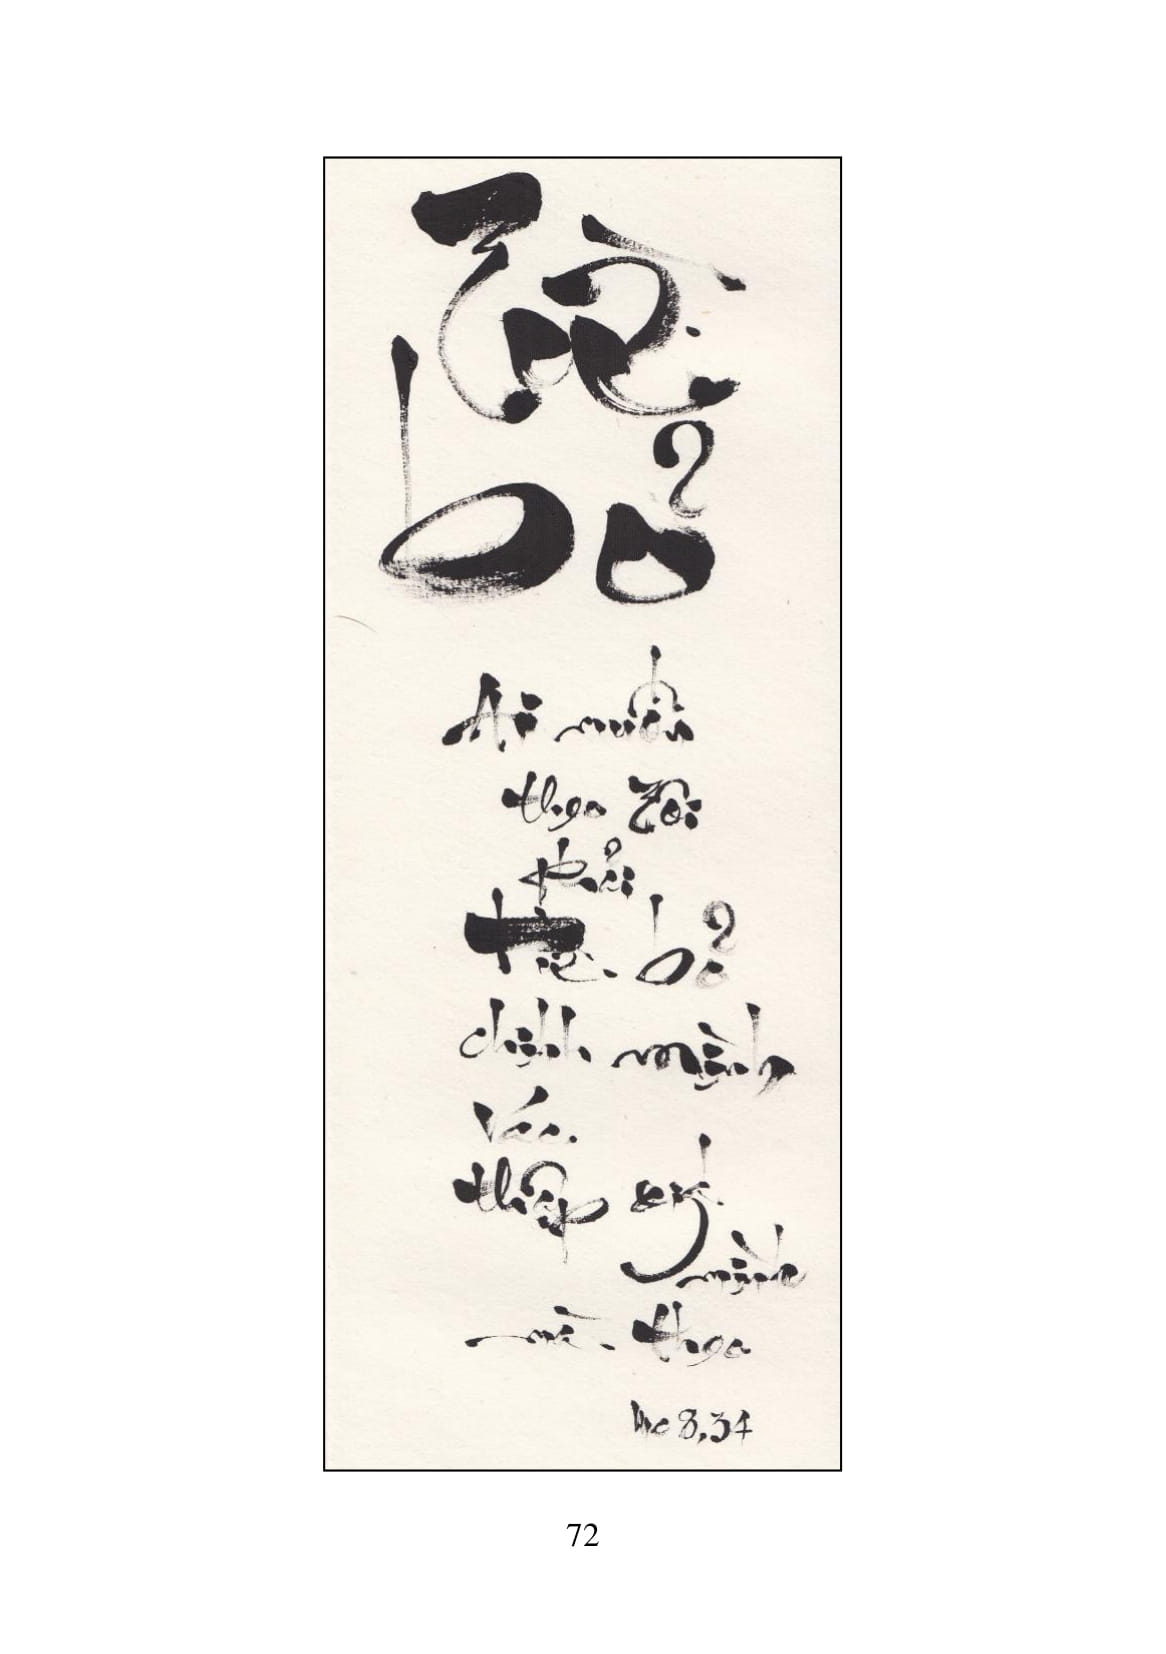 Từ
bỏ
Ai muốn
theo Tôi
phải
từ bỏ
chính mình
vác
thập giá
mình
mà theo
Mc 8,34
72